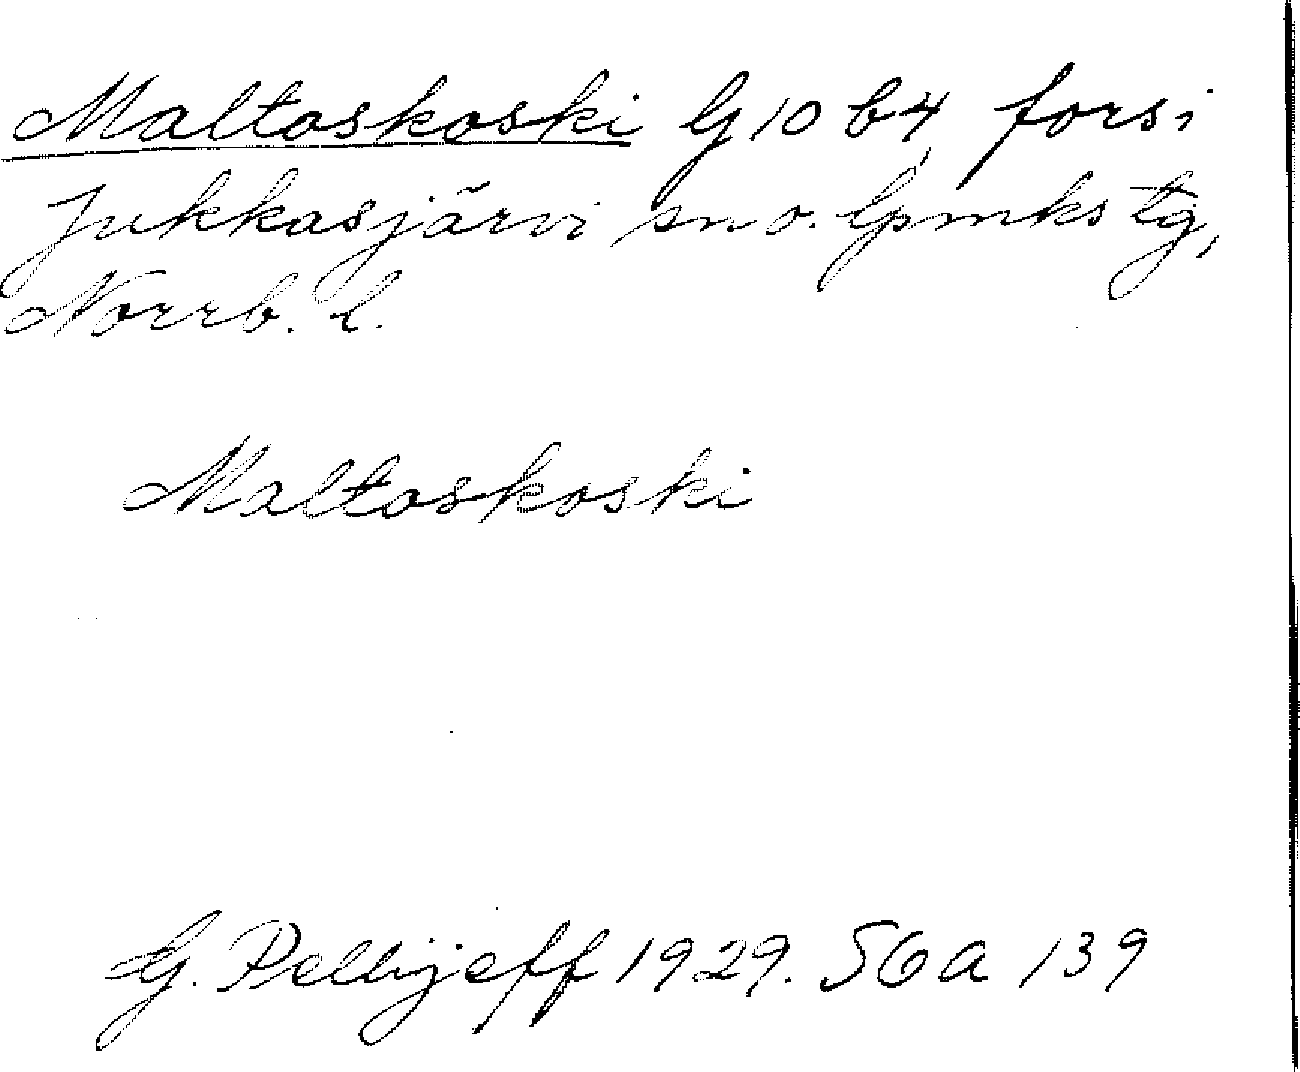 Maltoskoski G 10 b 4 fors i
Jukkasjärvi sn o. lpmks tg,
Norrb. l.
Maltoskoski
G. Pellijeff 1929. SGA 139